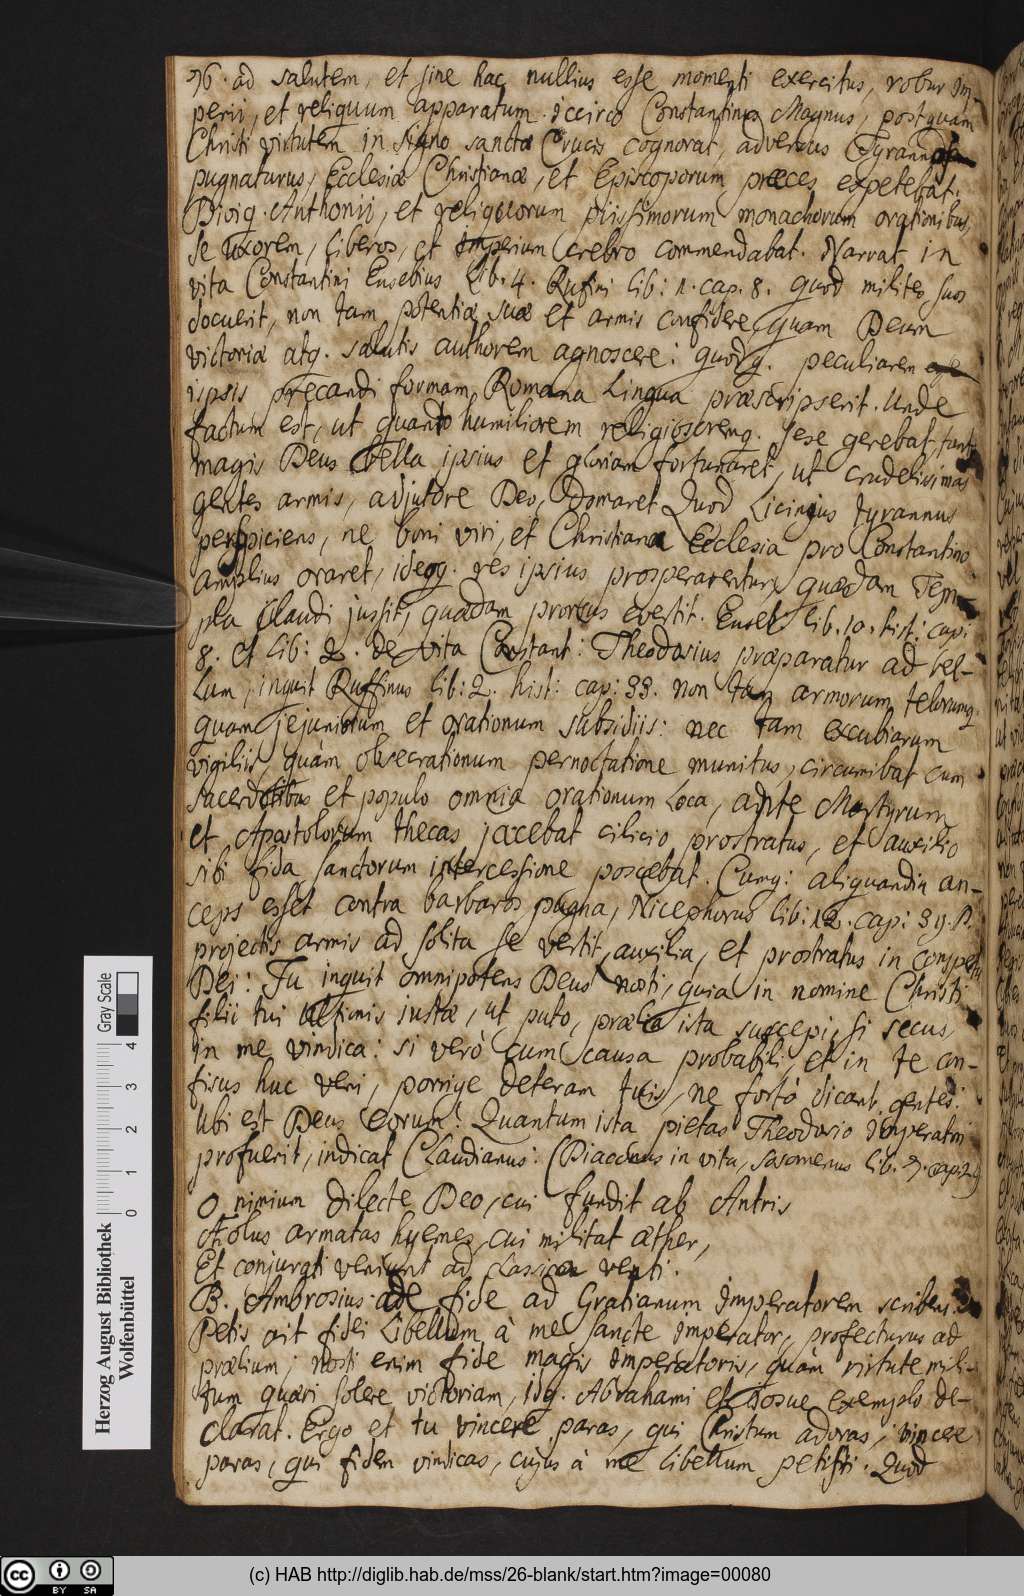 76. ad salutem, et sine hac nullius esse momenti exercitus, robur Im-
perii, et reliquum apparatum. Iccirco Constantinus Magnus, postquam
Christi virtutem in signo sanctæ Crucis cognorat, adversus Tyrannos
pugnaturus, Ecclesiæ Christianæ, et Episcoporum præces expetebat.
Divig. Anthonii, et reliquorum piissimorum monachorum orationibus,
se uxorem, liberos, et imperium crebro commendabat. Narrat in
vita Constantini Eusebius Lib. 4. Rufini lib: 1. cap. 8. quod milites suos
docuerit, non tam potentiæ suæ et armis confidere quam Deum
victoriæ atq. salutis authorem agnoscere: quodq. peculiarem
ipsis precandi formam Romana Lingua præscripserit. Unde
factum est, ut quanto humiliorem religiosoremq. sese gerebat, tanto
magis Deus bella ipsius et gloriam fortunaret, ut crudelissimas
gentes armis, adjutore Deo, domaret. Quod Licinius tyrannus
perspiciens, ne boni viri, et Christiana Ecclesia pro Constantino
amplius oraret, ideoq. res ipsius prosperarentur, quædam Tem-
pla claudi jussit, quædam prorsus evertit. Euseb. lib. 10. hist: cap:
8. et lib: 2. de vita Constant: Theodosius præparatur ad bel-
lum, inquit Ruffinus lib: 2. hist: cap: 33. non tam armorum telorumq.
quam jejuniorum et orationum subsidiis: nec tam excubiarum
vigiliis, quàm obsecrationum pernoctatione munitus, circumibat cum
sacerdotibus et populo omnia orationum Loca, ante Martyrum
et Apostolorum thecas jacebat cilicio prostratus, et auxilio
sibi fida sanctorum intercessione poscebat. Cumq: aliquandiu an-
ceps esset contra barbaros pugna, Nicephorus lib: 12. cap: 39.
projectis armis ad solita se vertit auxilia, et prostratus in conspectu
Dei: Tu inquit omnipotens Deus nosti, quia in nomine Christi
filii tui ultionis iustæ, ut puto, prælia ista suscepi, si secus
in me vindica: si verò cum causa probabili, et in te con-
fisus huc veni, porrige dexteram tuis, ne fortè dicant gentes:
Ubi est Deus eorum? Quantum ista pietas Theodosio Imperatori
profuerit, indicat Claudianus: (Diaconus in vita, Sosomenus lib. 7. cap. 24
O nimium dilecte Deo, cui fundit ab Antris
Æolus armatas hyemes, cui militat æther,
Et conjurati veniunt ad classica venti.
B. Ambrosius de fide ad Gratianum Imperatorem scribens.
Petis ait fidei Libellum à me sancte Imperator, profecturus ad
prælium; nosti enim fide magis Imperatoris, quàm virtute mili-
tum quæri solere victoriam, idq. Abrahami et Iosue exemplo de-
clarat. Ergo et tu vincere paras, qui Christum adoras, vincere
paras, qui fidem vindicas, cujus à me libellum petisti. Quod
Herzog August Bibliothek
Wolfenbüttel
0 1 2 3 4
Gray Scale
(c) HAB http://diglib.hab.de/mss/26-blank/start.htm?image=00080
cc BY SA